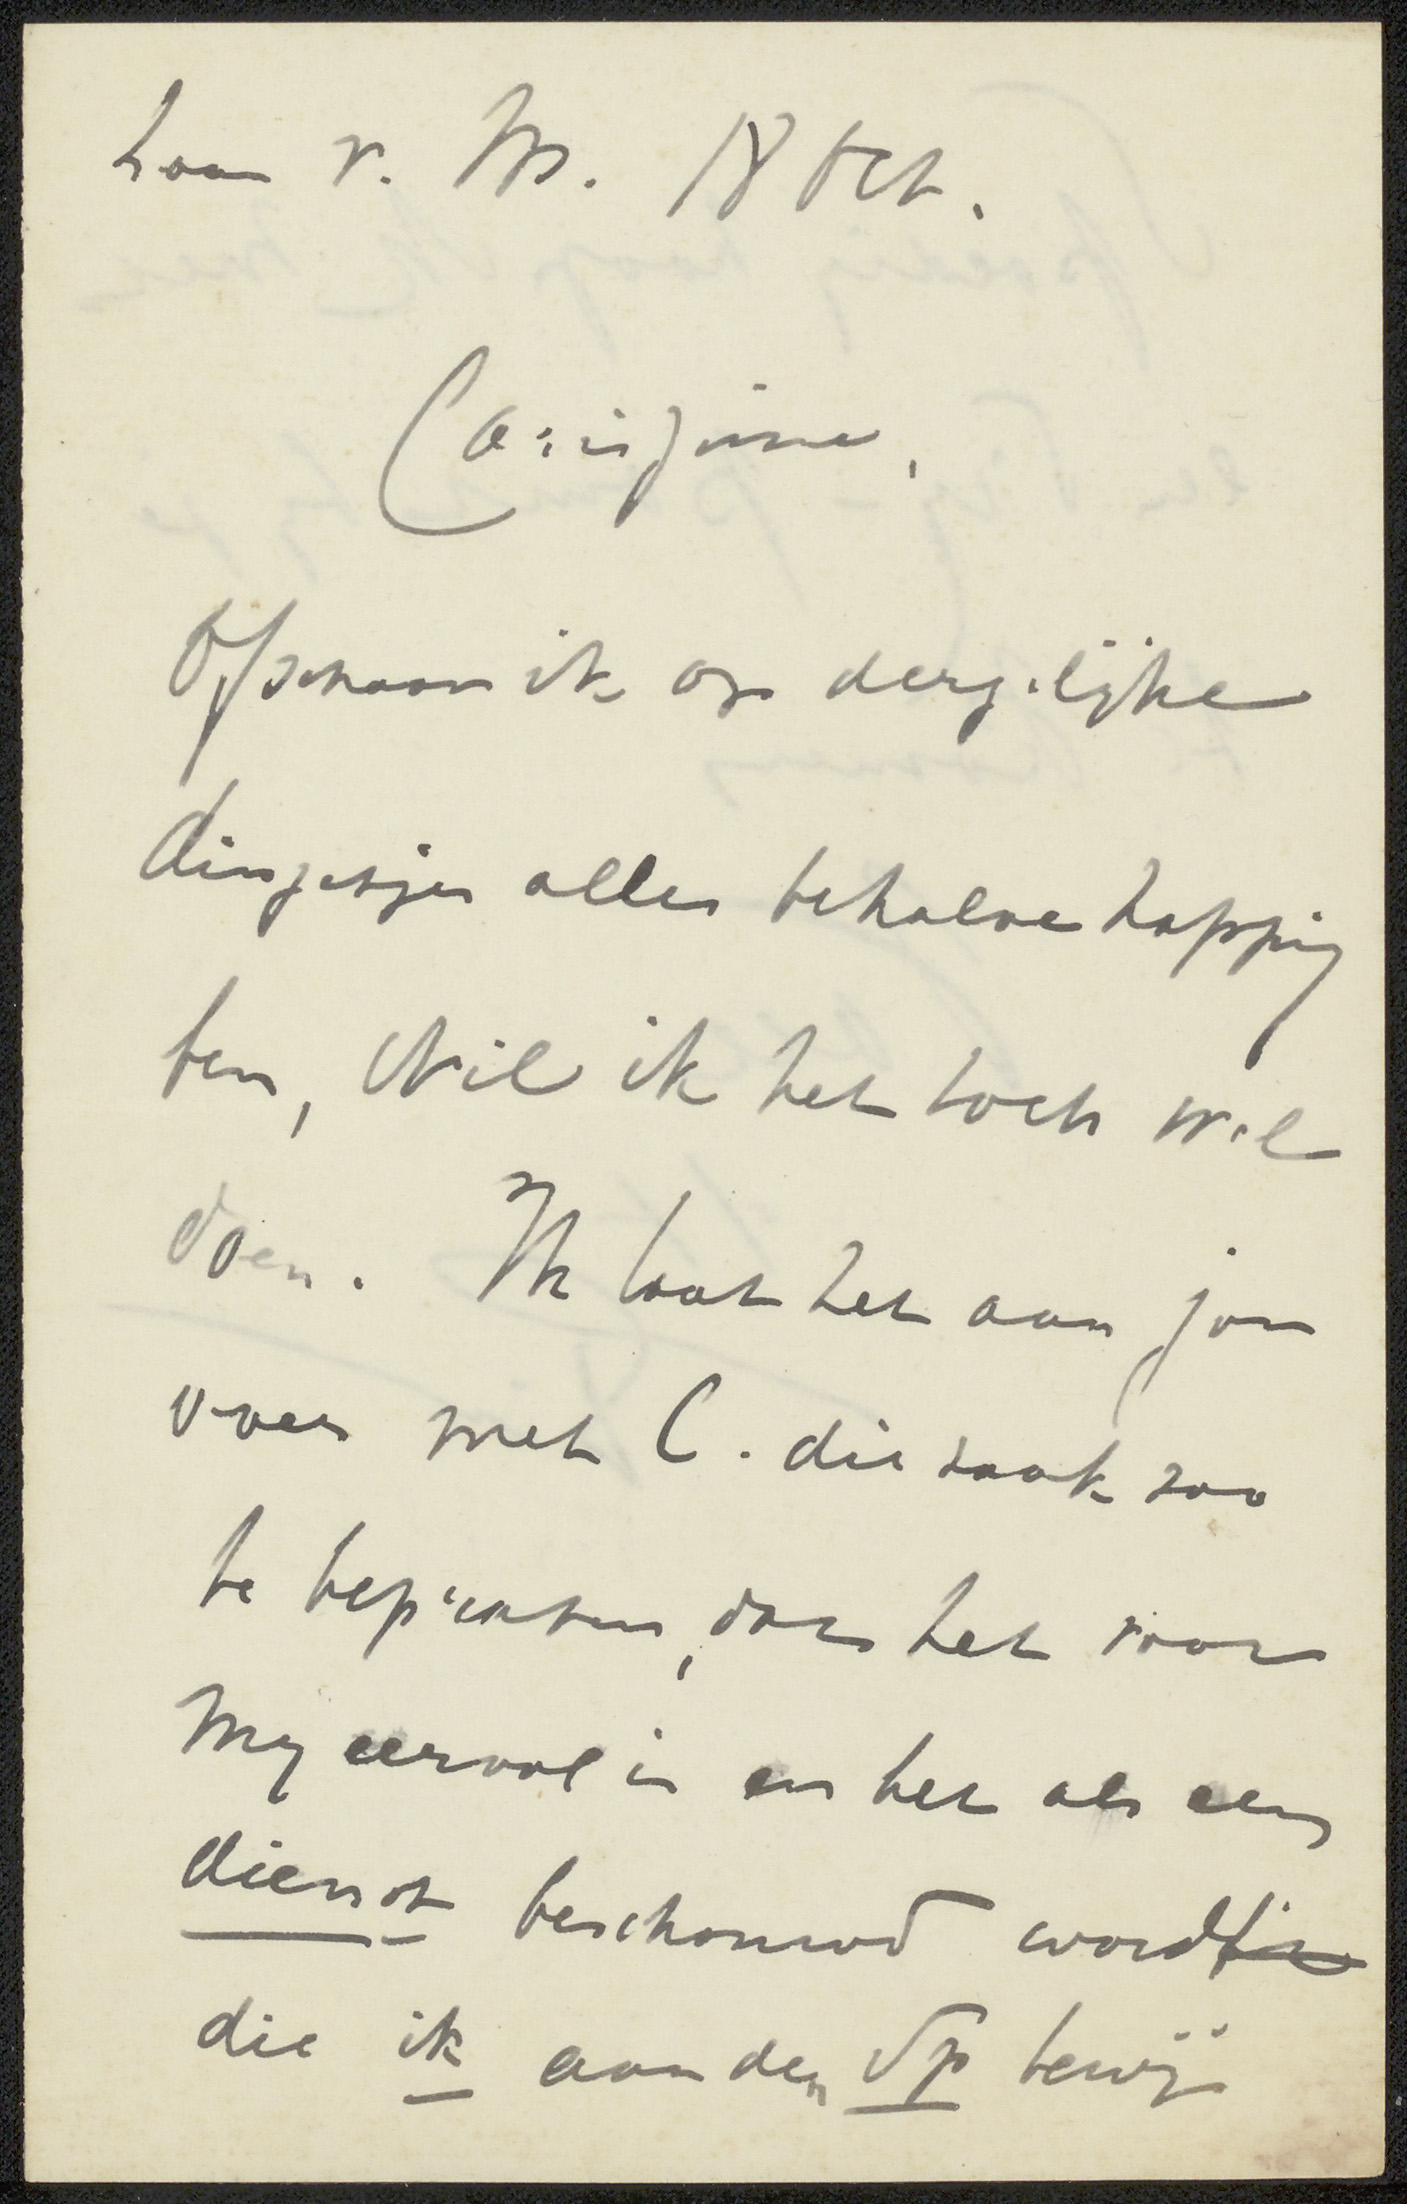 Laan v. M. 18 Oct.
Carissime,
Ofschoon ik op dergelijke
dingetjes alles behalve happig
ben, wil ik het toch wel
doen. Ik laat het aan jou
over met C. die zaak zoo
te bepraten, dat het voor
my eervol is en het als een
dienst beschouwd wordt
die ik aan den Sp bewijs